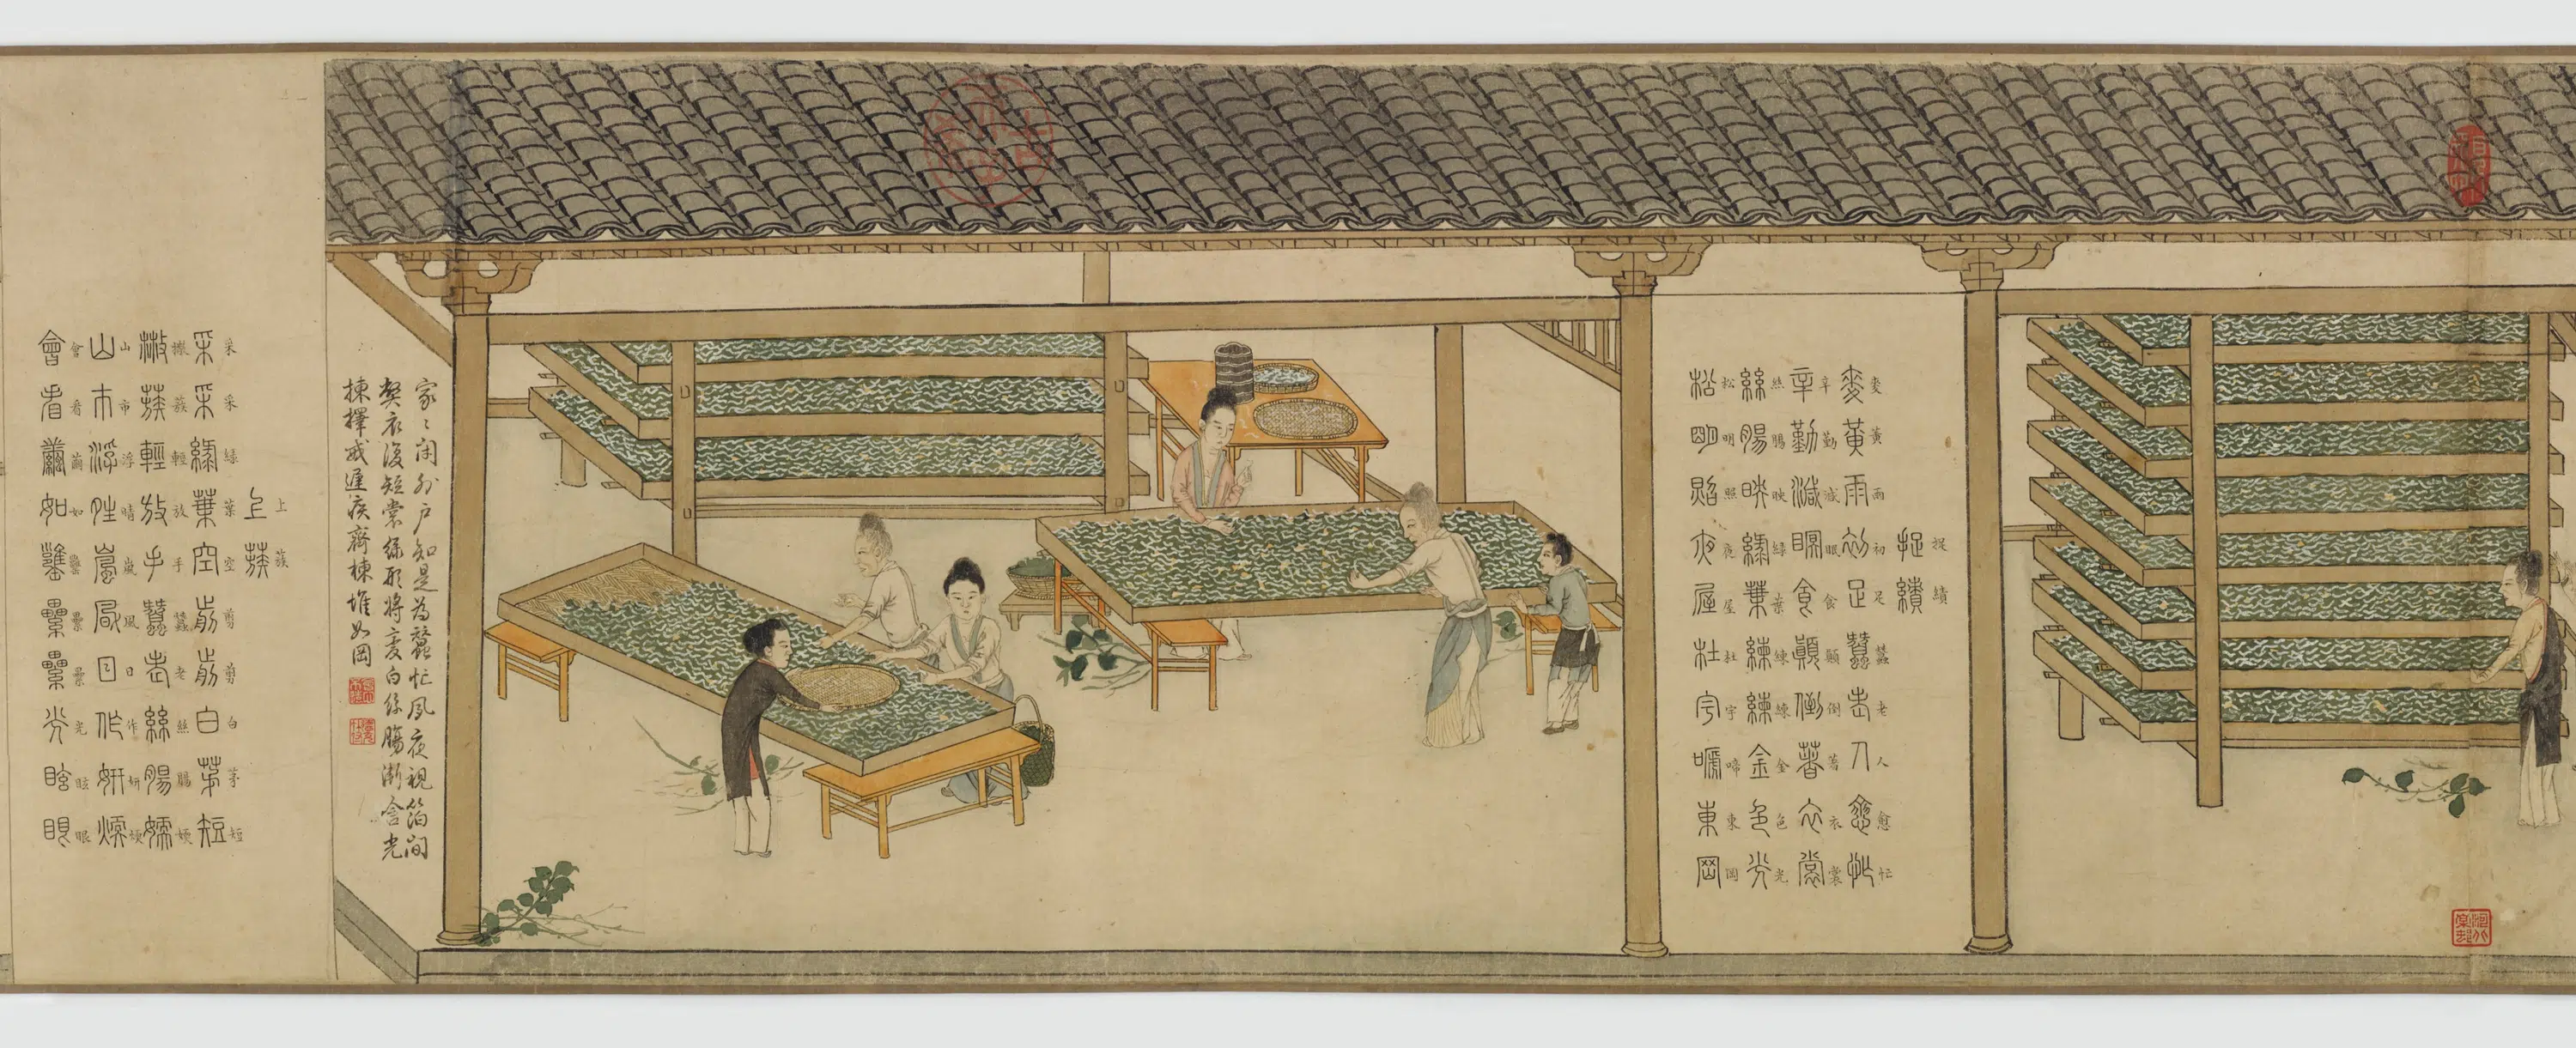 捉績
麥黃雨初足蠶老人愈忙
辛勤減眠食顛倒著衣裳
絲腸映綠葉練練金色光
松明照夜屋杜宇啼東岡
家〻閉外戶知是為蠶忙夙夜視箔間
獘衣復短裳綠形將變白絲腸漸含光
揀擇戒遲疾齊棟堆如岡
上蔟
采采綠葉空剪剪白茅短
撒蔟輕放手蠶老絲腸媆
山市浮晴嵐風日作妍煗
會看繭如甕纍纍光眩眼